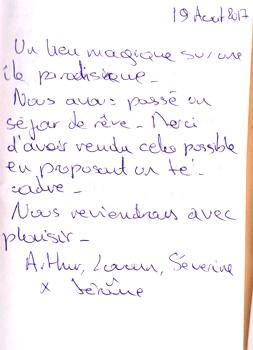 19 Aout 2017
Un lieu magique sur une
île paradisiaque -
Nous avons passé un
séjour de rêve - Merci
d'avoir rendu cela possible
en proposant un tel
cadre -
Nous reviendrons avec
plaisir -
Arthur, Séverine
x Jérôme